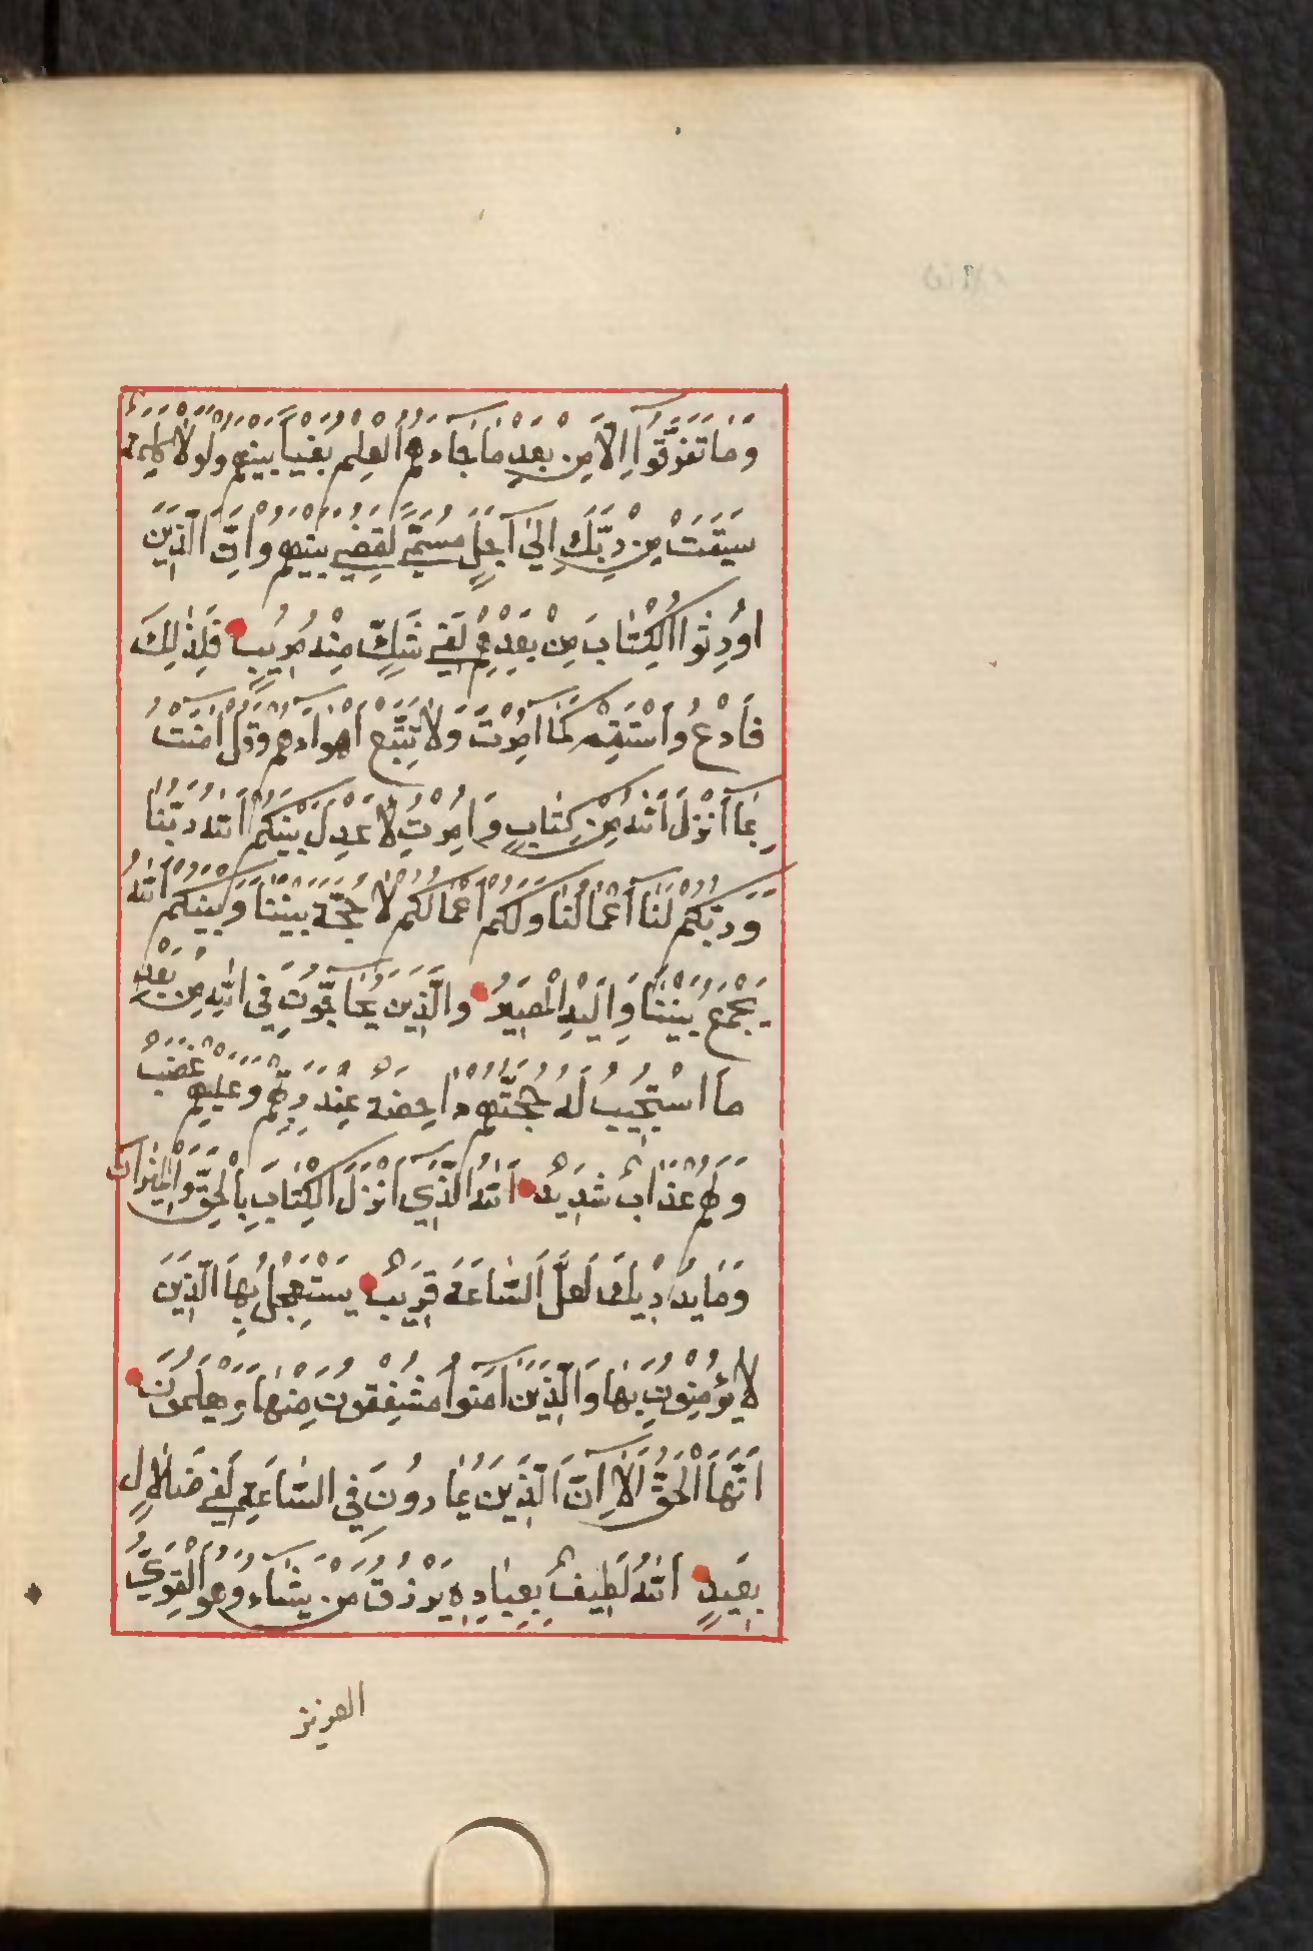 وَمَا تَفَرَّقُوا اِلَّا مِنْ بَعْدِ مَا جَاءَهُمُ الْعِلْمُ بَغْيًا بَيْنَهُمْ وَلَوْلَا كَلِمَةٌ
سَبَقَتْ مِنْ رَبِّكَ اِلَى اَجَلٍ مُسَمًّى لَقُضِيَ بَيْنَهُمْ وَاِنَّ الَّذِينَ
اُورِثُوا الْكِتَابَ مِنْ بَعْدِهِمْ لَفِي شَكٍّ مِنْهُ مُرِيبٍ فَلِذٰلِكَ
فَادْعُ وَاسْتَقِمْ كَمَا اُمِرْتَ وَلَا تَتَّبِعْ اَهْوَاءَهُمْ وَقُلْ اٰمَنْتُ
بِمَا اَنْزَلَ اللّٰهُ مِنْ كِتَابٍ وَاُمِرْتُ لِاَعْدِلَ بَيْنَكُمُ اَللّٰهُ رَبُّنَا
وَرَبُّكُمْ لَنَا اَعْمَالُنَا وَلَكُمْ اَعْمَالُكُمْ لَا حُجَّةَ بَيْنَنَا وَبَيْنَكُمُ اَللّٰهُ
يَجْمَعُ بَيْنَنَا وَاِلَيْهِ الْمَصِيرُ وَالَّذِينَ يُحَاجُّونَ فِي اللّٰهِ مِنْ بَعْدِ
مَا اسْتُجِيبَ لَهُ حُجَّتُهُمْ دَاحِضَةٌ عِنْدَ رَبِّهِمْ وَعَلَيْهِمْ غَضَبٌ
وَلَهُمْ عَذَابٌ شَدِيدٌ اَللّٰهُ الَّذِي اَنْزَلَ الْكِتَابَ بِالْحَقِّ وَالْمِيزَانَ
وَمَا يُدْرِيكَ لَعَلَّ السَّاعَةَ قَرِيبٌ يَسْتَعْجِلُ بِهَا الَّذِينَ
لَا يُؤْمِنُونَ بِهَا وَالَّذِينَ اٰمَنُوا مُشْفِقُونَ مِنْهَا وَيَعْلَمُونَ
اَنَّهَا الْحَقُّ اَلَا اِنَّ الَّذِينَ يُمَارُونَ فِي السَّاعَةِ لَفِي ضَلَالٍ
بَعِيدٍ اَللّٰهُ لَطِيفٌ بِعِبَادِهِ يَرْزُقُ مَنْ يَشَاءُ وَهُوَ الْقَوِيُّ
العزيز